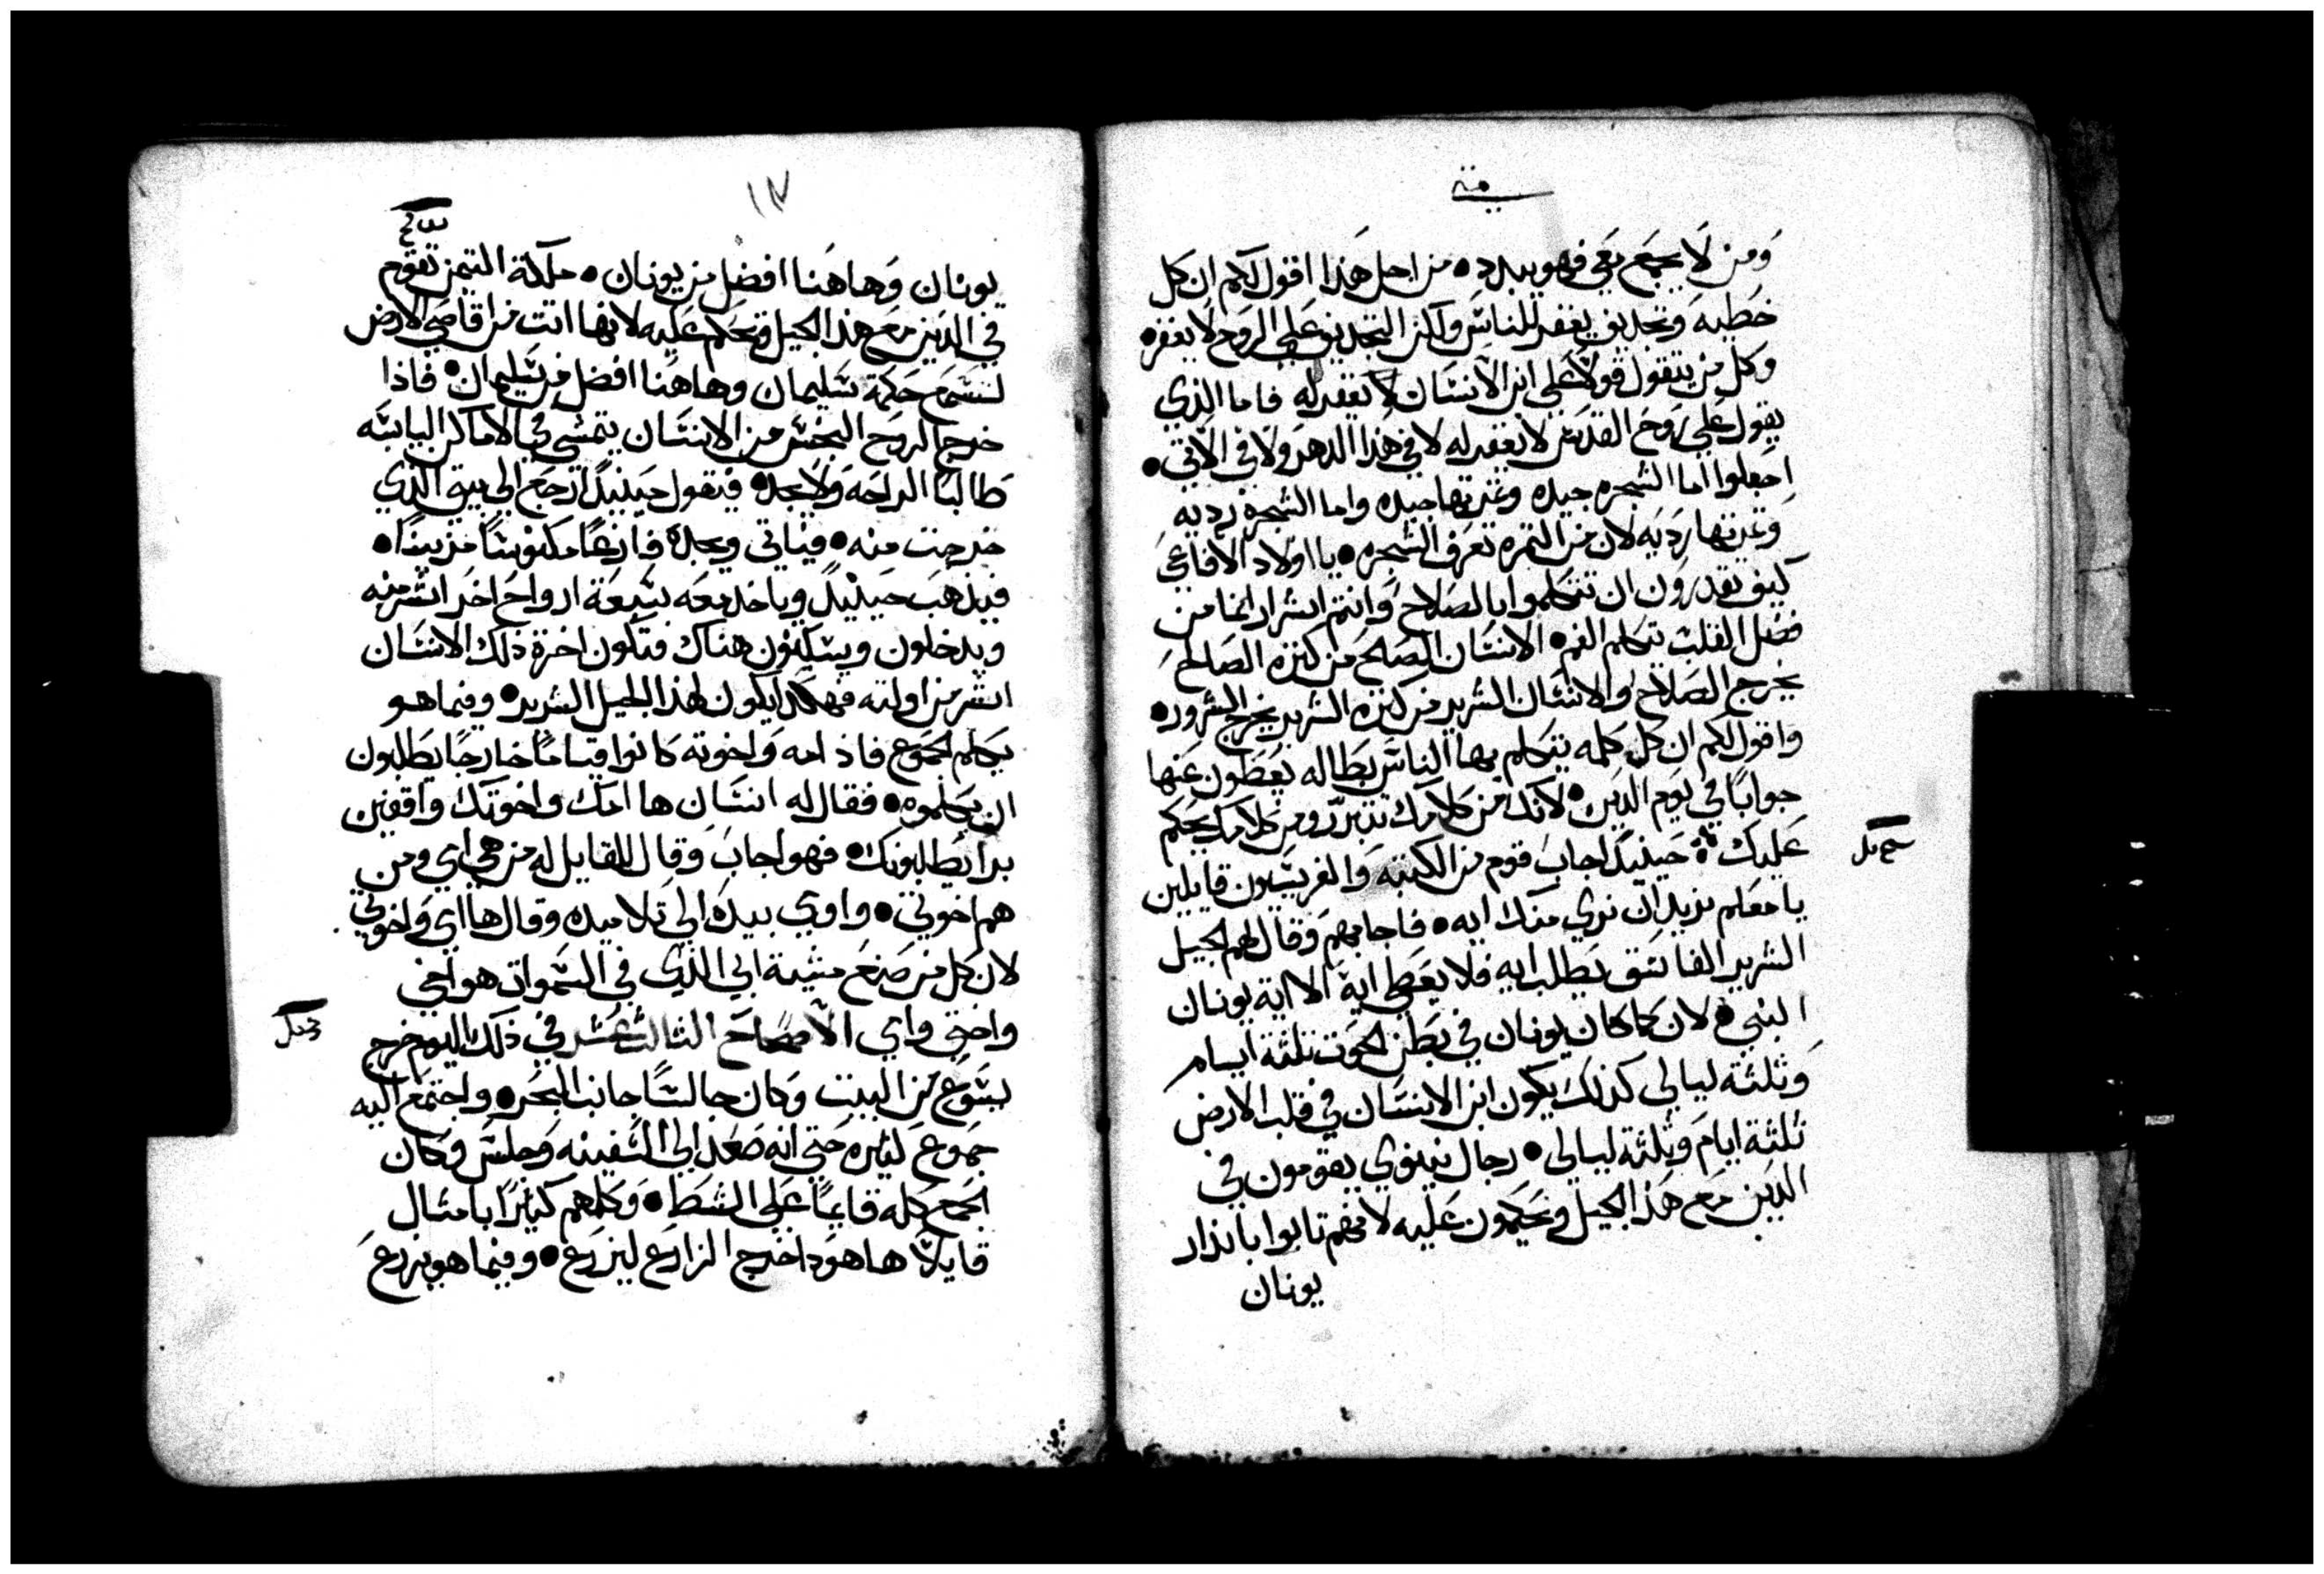 متى
وَمن لَا يجمَع مَعي فهو يبدد • من اجل هَذا اقول لكم ان كل
خَطيه وَتجديف يغفر للناسَ ولكن التجديف عَلى الروَح لَا يغفر •
وَكل من يتقول قولاً عَلى ابن الانسَان لَا يغفر له فاما الذي
يقول عَلى روَح القدسَ لا يغفر له لا في هذا الدهر وَلَا في الاتي •
اجعلوا اما الشجره جيده وثمرتها جيده واما الشجره رديه
وَثمرتها رَديَه لان من الثمره تعرَف الشجره • يا اولاد الافاعَى
كيف تقدروَن ان تتكلموا بالصَلاح وَانتم اشرار انما من
فضل القلب تتكلم الفم • الانسَان الصَالح من كنزه الصَالح
يخرج الصَلاح وَالانسَان الشرير من كنزه الشرير يخرج الشرور •
وَاقول لكم ان كل كلمه يتكلم بها الناسَ بطاله يُعَطون عَنها
جوابًا في يوَم الدين • لانك من كلامك تتبرّر ومن كلامك يحكم
عَليك • حينيذٍ اجابَ قوم من الكتبه وَالفريسَيون قايلين
يا معَلم نريد ان نري منك ايه • فاجابهم وَقال لهم الجيل
الشرير الفاسَق يطلب ايه فلا يعَطى اية الا اية يونان
النبي • لان كما كان يونان في بَطن الحَوت ثلثة ايام
وَثلثة ليالى كذلك يكون ابن الانسَان في قلب الارض
ثلثة ايامَ وَثلثة ليالى • رجال نينوي يقومون في
الدَين مَع هَذا الجيل وَيحكمون عَليه لانهم تابوا بانذار
يونان
١٧
يونان وَهاهَنا افضل من يونان • ملكة التيمن تقوَم
في الدَين مَع هذا الجيل وَتحكم عَليه لانها اتت من اقاصَي الارض
لتسَمَع حَكمَة سَليمان وهاهَنا افضل من سَليمان • فاذا
خرج الروَح النجسَ من الانسَان يتمشى في الاماكن اليابسَه
طَالبًا الراحَه وَلَا يجد • فيقول حينيذٍ ارجَع الى بيتى الذي
خرجت منه • فياتى ويجده فارغًا مكنوسًا مزينًا •
فيذهَب حَينيذٍ وياخذ معَه سَبعَة ارواحَ اخَر اشر منه
ويدخلون ويسَكنون هناك فتكون اخرة ذلك الانسَان
اشر من اولته فهكذا يكون لهذا الجيل الشرير • وفيما هو
يكلم الجموَع فاذ امه وَاخوته كانوا قيامًا خارجًا يطَلبون
ان يكلموه • فقال له انسَان ها امك واخوتك واقفين
برا يَطلبونك • فهو اجابَ وَقال للقايل له من هي امي ومن
هم اخوتى • واومي بيدَه الى تلاميده وقال ها امي وَاخوتى
لان كل من صَنعَ مشية ابي الذي في السَموات هو اخي
واختي وامي الاصحاحَ الثالث عَشر في ذلك اليوم خرج
يسَوَع من البيت وَكان جالسًا جانب البحَر • واجتمَع اليه
جموَع كثيره حَتي انه صَعَد الى السَفينه وَجلسَ وَكان
الجمع كله قايمًا عَلى الشط • وَكلمهم كثيرًا بامثال
قايلًا هاهوَذا خرج الزارَع ليزرَع • وفيما هو يزرعَ